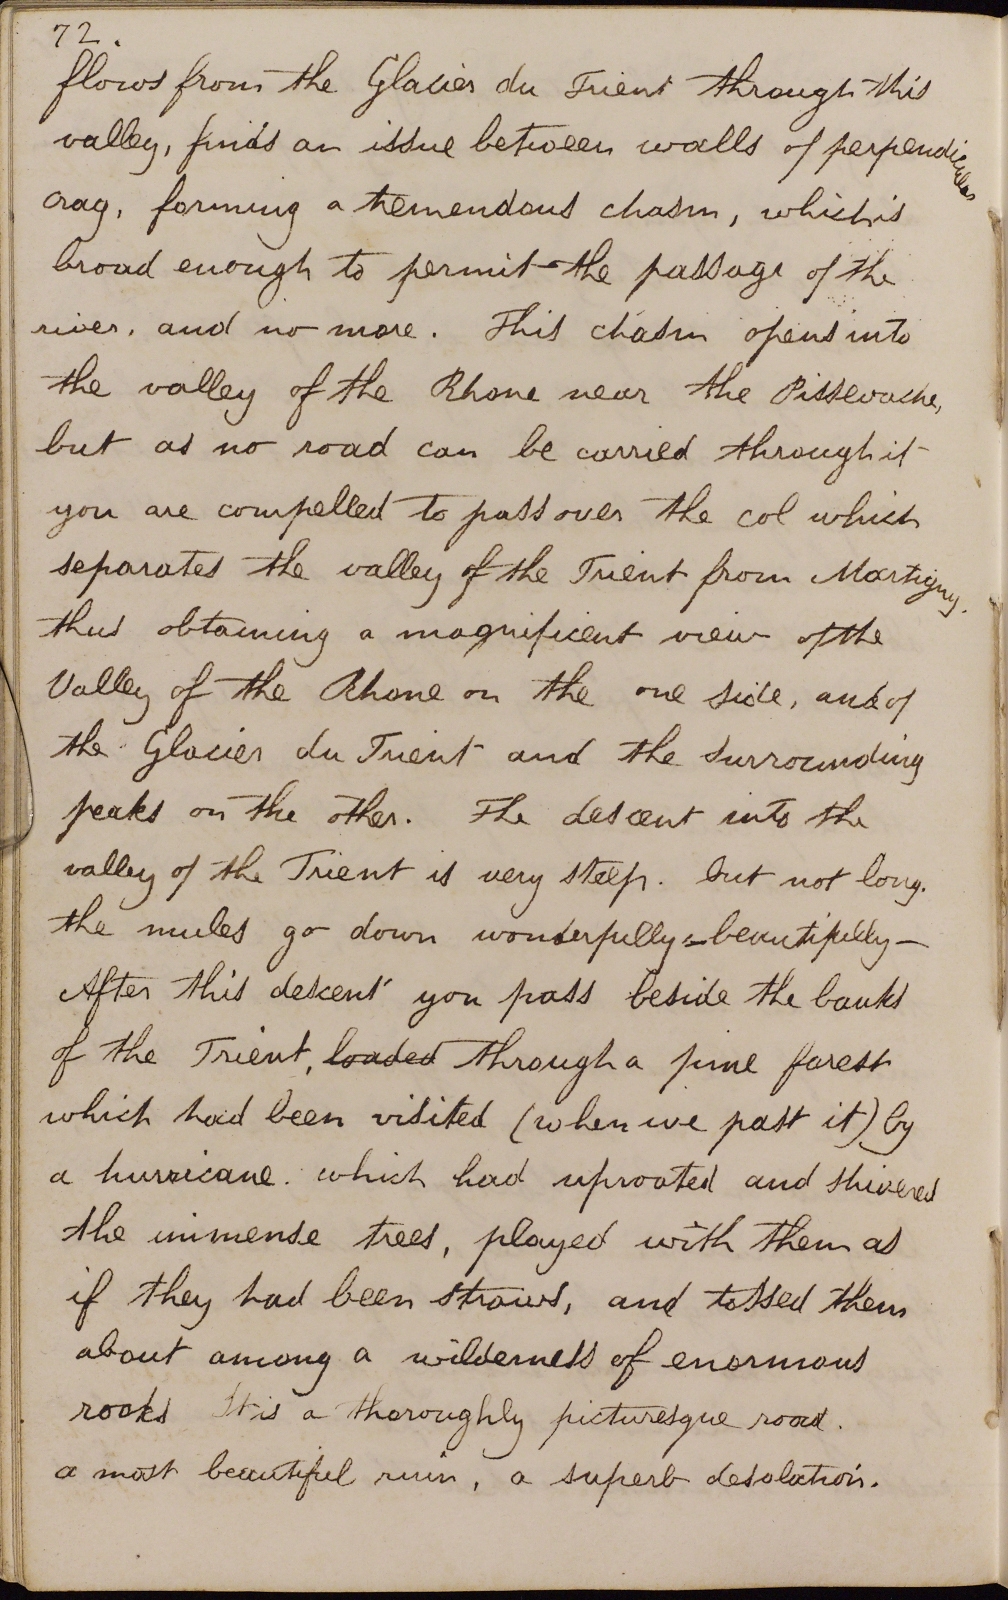 72.
flows from the Glacier du Trient through this
valley, finds an issue between walls of perpendicular
crag, forming a tremendous chasm, which is
broad enough to permit the passage of the
river, and no more. This chasm opens into
the valley of the Rhone near the Pissevache,
but as no road can be carried through it
you are compelled to pass over the col which
separates the valley of the Trient from Martigny.
thus obtaining a magnificent view of the
Valley of the Rhone on the one side, and of
the Glacier du Trient and the surrounding
peaks on the other. The descent into the
valley of the Trient is very steep. but not long.
the mules go down wonderfully = beautifully —
After this descent you pass beside the banks
of the Trient, loaded through a pine forest
which had been visited (when we past it) by
a hurricane. which had uprooted and shivered
the immense trees, played with them as
if they had been straws, and tossed them
about among a wilderness of enormous
rocks It is a thoroughly picturesque road.
a most beautiful ruin, a superb desolation.